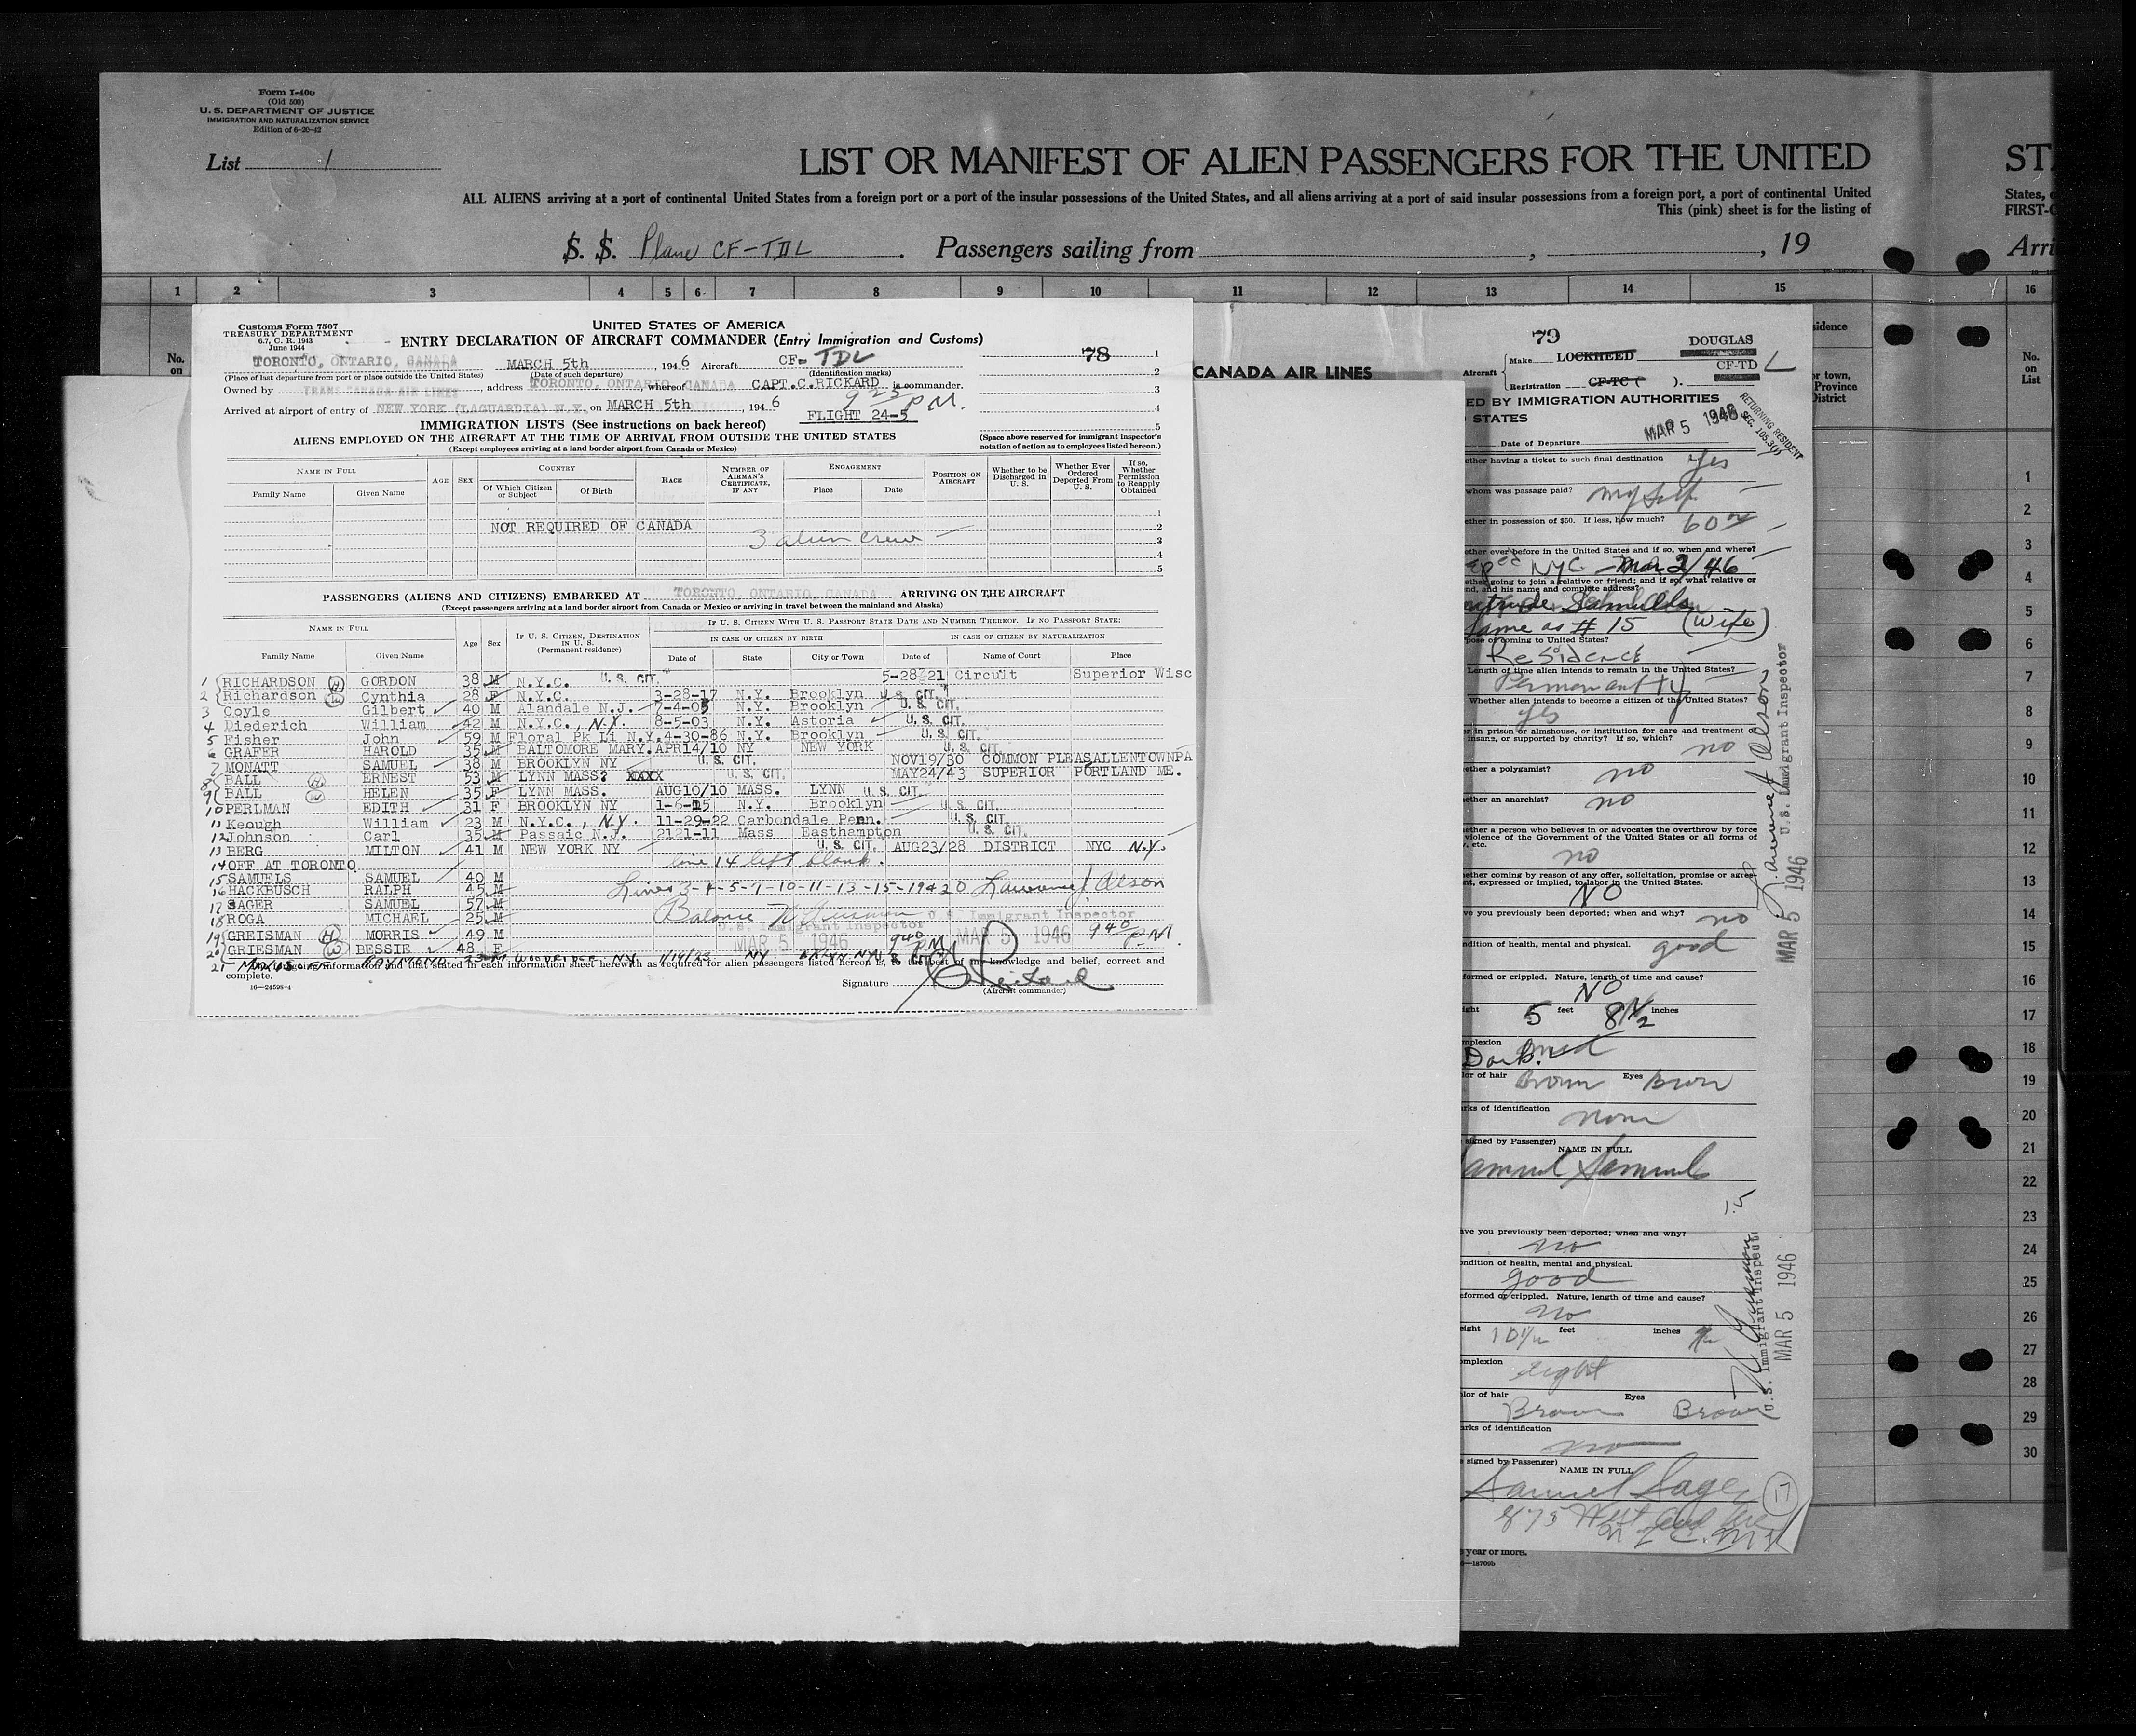 Form I-400
(Old 500)
U. S. DEPARTMENT OF JUSTICE
IMMIGRATION AND NATURALIZATION SERVICE
Edition of 6-20-42
List 1
LIST OR MANIFEST OF ALIEN PASSENGERS FOR THE UNITED
ST
ALL ALIENS arriving at a port of continental United States from a foreign port or a port of the insular possessions of the United States, and all aliens arriving at a port of said insular possessions from a foreign port, a port of continental United
States,
This (pink) sheet is for the listing of
FIRST-C
S. S. Plane CF-TDL . Passengers sailing from , , 19
Arri
1 2 3 4 5 6 7 8 9 10 11 12 13 14 15 16
No.
on
Customs Form 7507
TREASURY DEPARTMENT
6.7, C. R. 1943
June 1944
UNITED STATES OF AMERICA
ENTRY DECLARATION OF AIRCRAFT COMMANDER (Entry Immigration and Customs)
78
TORONTO, ONTARIO, CANADA MARCH 5th , 194 6 Aircraft CF- TDL
(Place of last departure from port or place outside the United States) (Date of such departure) (Identification marks)
Owned by TRANS CANADA AIR LINES address TORONTO, ONTARIO, CANADA whereof CAPT.C.RICKARD is commander.
9 25 P.M.
Arrived at airport of entry of NEW YORK (LAGUARDIA) N.Y. on MARCH 5th , 194 6
FLIGHT 24-5
1
2
3
4
5
IMMIGRATION LISTS (See instructions on back hereof)
ALIENS EMPLOYED ON THE AIRCRAFT AT THE TIME OF ARRIVAL FROM OUTSIDE THE UNITED STATES
(Except employees arriving at a land border airport from Canada or Mexico)
(Space above reserved for immigrant inspector's
notation of action as to employees listed hereon.)
NAME IN FULL
Family Name Given Name
AGE SEX
COUNTRY
Of Which Citizen or Subject Of Birth
RACE
NUMBER OF AIRMAN'S CERTIFICATE, IF ANY
ENGAGEMENT
Place Date
POSITION ON AIRCRAFT
Whether to be Discharged in U. S.
Whether Ever Ordered Deported From U. S.
If so, Whether Permission to Reapply Obtained
1
NOT REQUIRED OF CANADA 2
3 alien crew 3
4
5
PASSENGERS (ALIENS AND CITIZENS) EMBARKED AT TORONTO, ONTARIO, CANADA ARRIVING ON THE AIRCRAFT
(Except passengers arriving at a land border airport from Canada or Mexico or arriving in travel between the mainland and Alaska)
NAME IN FULL
Family Name Given Name
Age Sex
IF U. S. CITIZEN, DESTINATION IN U. S.
(Permanent residence)
IF U. S. CITIZEN WITH U. S. PASSPORT STATE DATE AND NUMBER THEREOF. IF NO PASSPORT STATE:
IN CASE OF CITIZEN BY BIRTH IN CASE OF CITIZEN BY NATURALIZATION
Date of State City or Town Date of Name of Court Place
1 RICHARDSON (H) GORDON 38 M N.Y.C. U. S. CIT. 5-28-21 Circuit Superior Wisc
2 Richardson (W) Cynthia 28 F N.Y.C. 3-28-17 N.Y. Brooklyn U. S. CIT.
3 Coyle Gilbert 40 M Alandale N.J. 7-4-05 N.Y. Brooklyn U. S. CIT.
4 Diederich William 42 M N.Y.C., N.Y. 8-5-03 N.Y. Astoria U. S. CIT.
5 Fisher John 59 M Floral Pk Li N.Y. 4-30-86 N.Y. Brooklyn U. S. CIT.
6 GRAFER HAROLD 35 M BALTOMORE MARY. APR14/10 NY NEW YORK U. S. CIT.
7 MONATT SAMUEL 38 M BROOKLYN NY U. S. CIT. NOV19/30 COMMON PLEAS ALLENTOWN PA
8 BALL (H) ERNEST 53 M LYNN MASS? XXXX U. S. CIT. MAY24/43 SUPERIOR PORTLAND ME.
9 BALL (W) HELEN 35 F LYNN MASS. AUG10/10 MASS. LYNN U. S. CIT.
10 PERLMAN EDITH 31 F BROOKLYN NY 1-6-15 N.Y. Brooklyn U. S. CIT.
11 Keough William 23 M N.Y.C., N.Y. 11-29-22 Carbondale Penn. U. S. CIT.
12 Johnson Carl 35 M Passaic N.J. 2121-11 Mass Easthampton U. S. CIT.
13 BERG MILTON 41 M NEW YORK NY U. S. CIT. AUG23/28 DISTRICT NYC N.Y.
14 OFF AT TORONTO line 14 left blank.
15 SAMUELS SAMUEL 40 M
16 HACKBUSCH RALPH 45 M Lines 3-4-5-7-10-11-13-15-19 & 20 Lawrence J. Olson
17 SAGER SAMUEL 57 M
18 ROGA MICHAEL 25 M Balance U. S. Immigrant Inspector
U. S. Immigrant Inspector
19 GREISMAN (H) MORRIS 49 M MAR 5 1946 9 40 PM MAR 5 1946 9 40 P.M.
20 GRIESMAN (W) BESSIE 48 F
21 RAYMOND 23 M WOODRIDGE, NY. 1/14/23 NY BKLYN NY
information and that stated in each information sheet herewith as required for alien passengers listed hereon is, to the best of my knowledge and belief, correct and
complete.
16—24598-4
Signature C Rickard
(Aircraft commander)
CANADA AIR LINES
79
DOUGLAS
Aircraft Make LOCKHEED
Registration CF-TC ( ). CF-TD L
ED BY IMMIGRATION AUTHORITIES
STATES
MAR 5 1946
RETURNING RESIDENT
SEC. 105.305
Date of Departure
ether having a ticket to such final destination yes
whom was passage paid? myself
ether in possession of $50. If less, how much? 60
ether ever before in the United States and if so, when and where?
NYC - Mar 2/46
ether going to join a relative or friend; and if so, what relative or
nd, and his name and complete address?
Samuels
Same as # 15 (Wife)
pose of coming to United States?
Residence
Length of time alien intends to remain in the United States?
Permanently
Whether alien intends to become a citizen of the United States?
yes
r in prison or almshouse, or institution for care and treatment of
insane, or supported by charity? If so, which?
no
ether a polygamist?
no
ether an anarchist?
no
ether a person who believes in or advocates the overthrow by force
violence of the Government of the United States or all forms of
, etc.
no
ether coming by reason of any offer, solicitation, promise or agree-
nt, expressed or implied, to labor in the United States.
NO
ve you previously been deported; when and why? no
ndition of health, mental and physical. good
formed or crippled. Nature, length of time and cause?
NO
ight 5 feet 8 1/2 inches
mplexion Dark
lor of hair Brown Eyes Brown
rks of identification none
signed by Passenger)
NAME IN FULL
Samuel Samuels
15
Lawrence J. Olson
U. S. Immigrant Inspector
MAR 5 1946
ave you previously been deported; when and why?
no
ondition of health, mental and physical.
good
eformed or crippled. Nature, length of time and cause?
no
eight feet inches
omplexion light
lor of hair Eyes
Brown Brown
arks of identification
no
signed by Passenger)
NAME IN FULL
Samuel Sager
17
875 West End Ave
N.Y.C. N.Y.
U. S. Immigrant Inspector
MAR 5 1946
year or more.
—18709b
sidence
or town,
Province
District
No.
on
List
1
2
3
4
5
6
7
8
9
10
11
12
13
14
15
16
17
18
19
20
21
22
23
24
25
26
27
28
29
30